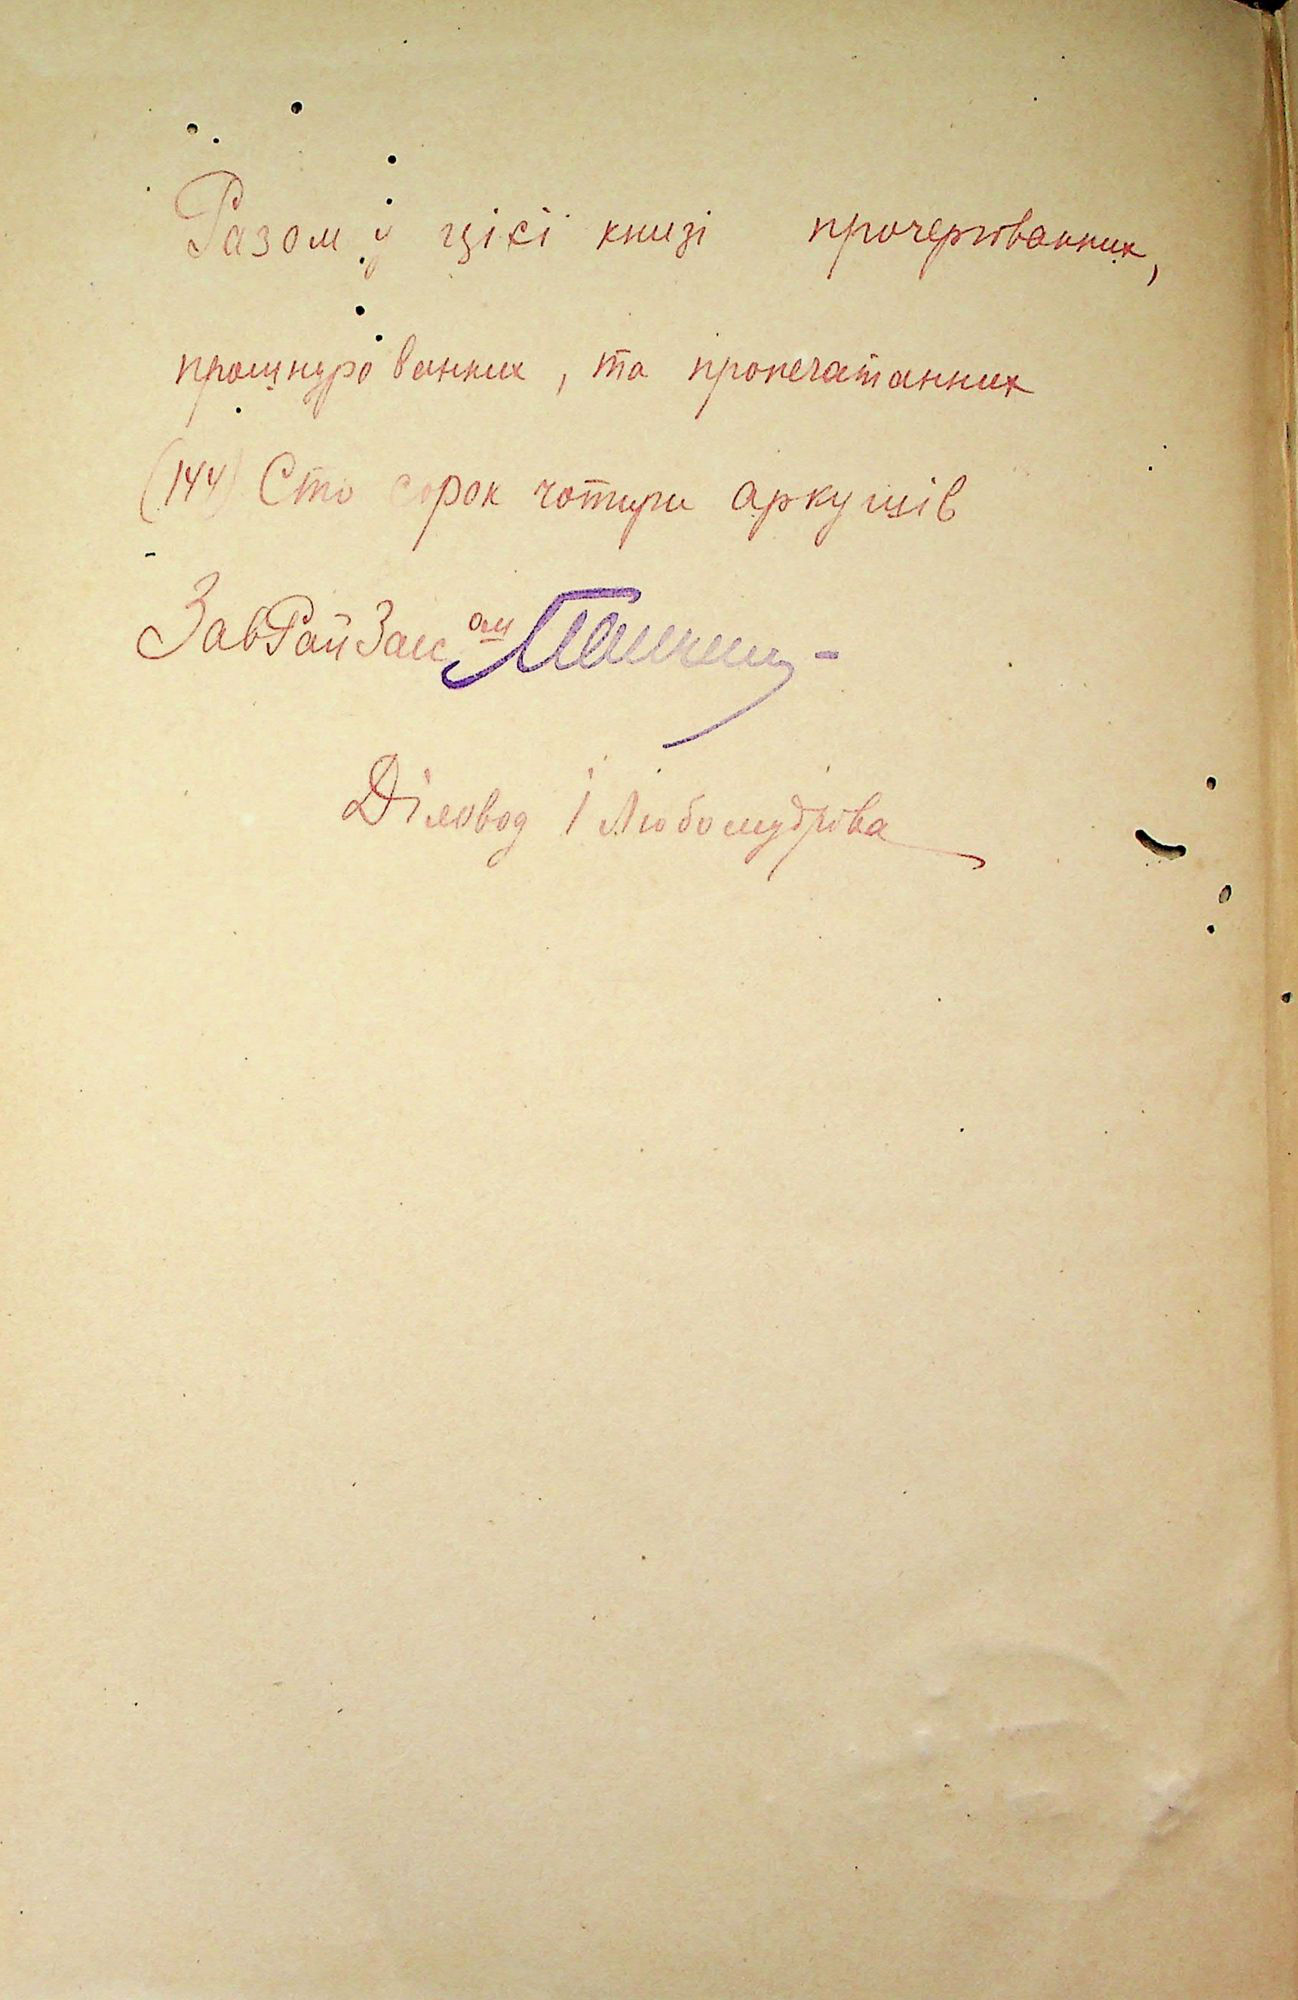 Разом у цієї книзі прочерговanних,
прошнурованних, та пропечатанних
(144) Сто сорок чотири аркушів
ЗавРайЗаг
Діловод І Любомудрова